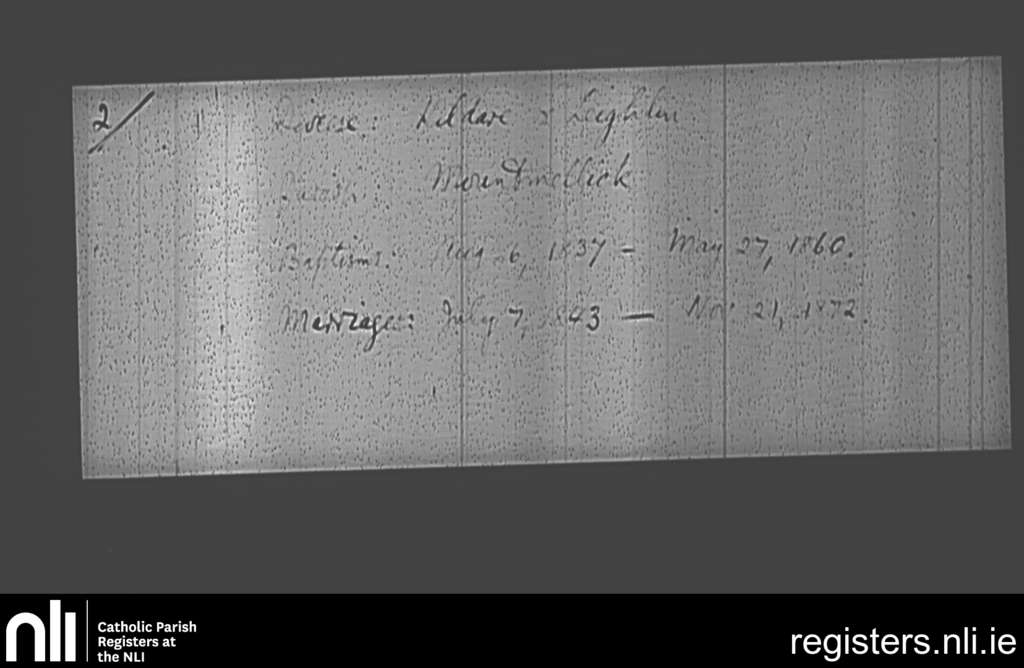 2/
Diocese: Kildare & Leighlin
Parish: Mountmellick
Baptisms: 26, 1837 - May 27, 1860.
Marriages: July 7, 1843 — Nov 21, 1872.
nli
Catholic Parish
Registers at
the NLI
registers.nli.ie